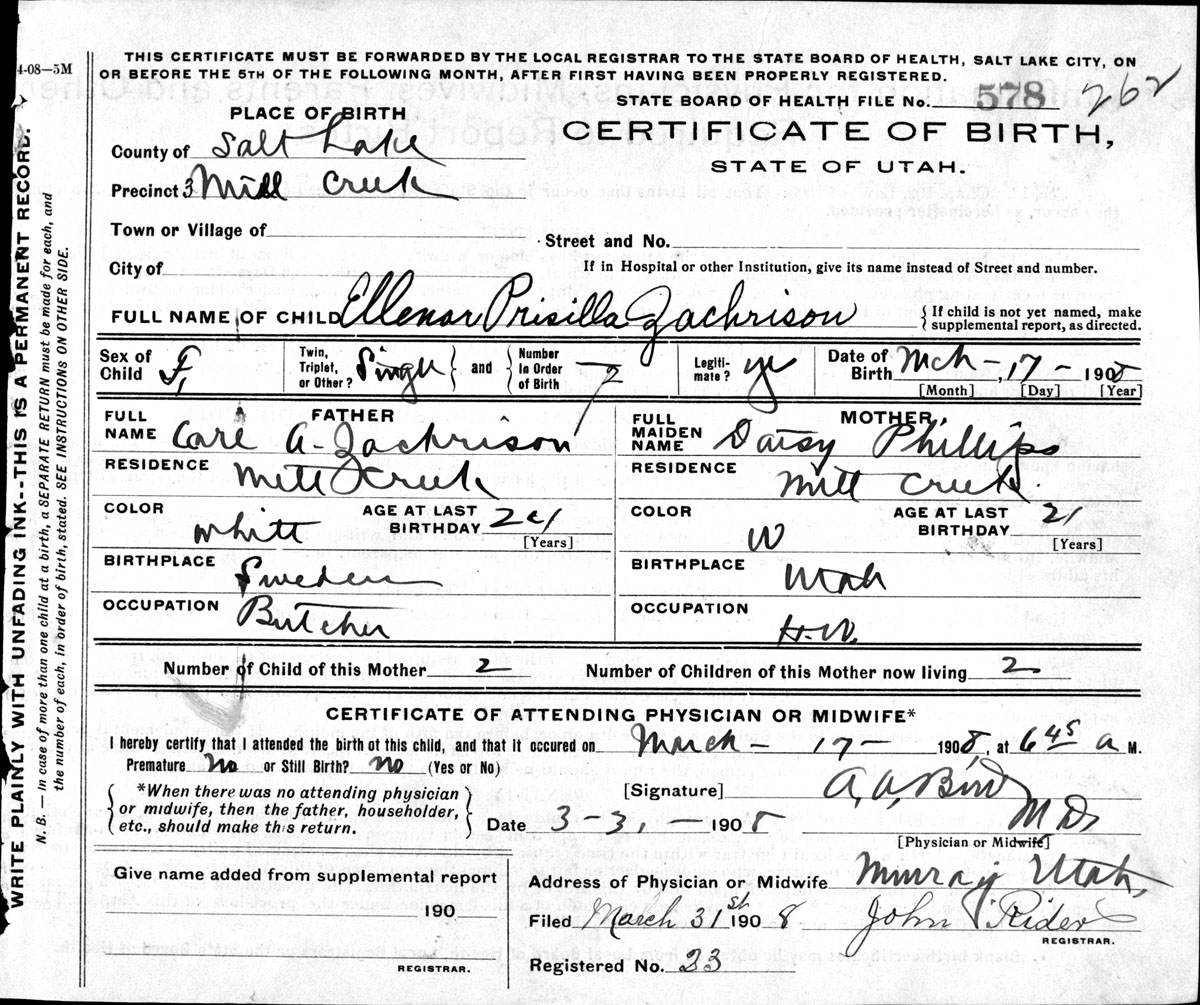 4-08—5M
THIS CERTIFICATE MUST BE FORWARDED BY THE LOCAL REGISTRAR TO THE STATE BOARD OF HEALTH, SALT LAKE CITY, ON
OR BEFORE THE 5TH OF THE FOLLOWING MONTH, AFTER FIRST HAVING BEEN PROPERLY REGISTERED.
STATE BOARD OF HEALTH FILE No. 578 262
PLACE OF BIRTH
CERTIFICATE OF BIRTH,
STATE OF UTAH.
County of Salt Lake
Precinct 3 Mill Creek
Town or Village of
Street and No.
City of
If in Hospital or other Institution, give its name instead of Street and number.
FULL NAME OF CHILD Ellenor Prisilla Zachrison
If child is not yet named, make
supplemental report, as directed.
Sex of Child F,
Twin, Triplet, or Other? Single and Number In Order of Birth
Legiti-mate?
Date of Birth Mch – 17 – 1908
[Month] [Day] [Year]
FATHER
FULL NAME Carl A. Zachrison
RESIDENCE Mill Creek
COLOR White
AGE AT LAST BIRTHDAY [Years]
BIRTHPLACE Sweden
OCCUPATION Butcher
MOTHER,
FULL MAIDEN NAME Daisy Phillips
RESIDENCE Mill Creek.
COLOR W
AGE AT LAST BIRTHDAY 21 [Years]
BIRTHPLACE Utah
OCCUPATION H.W.
Number of Child of this Mother 2
Number of Children of this Mother now living 2
CERTIFICATE OF ATTENDING PHYSICIAN OR MIDWIFE*
I hereby certify that I attended the birth of this child, and that it occured on March – 17 – 1908, at 6 45 a M.
Premature? No or Still Birth? No (Yes or No)
*When there was no attending physician
or midwife, then the father, householder,
etc., should make this return.
[Signature] A. A. Bird
M D,
[Physician or Midwife]
Date 3-31, 1908
Give name added from supplemental report
190
REGISTRAR.
Address of Physician or Midwife Murray Utah,
Filed March 31st 1908 John Rider
REGISTRAR.
Registered No. 23
WRITE PLAINLY WITH UNFADING INK--THIS IS A PERMANENT RECORD.
N. B. — In case of more than one child at a birth, a SEPARATE RETURN must be made for each, and
the number of each, in order of birth, stated. SEE INSTRUCTIONS ON OTHER SIDE.